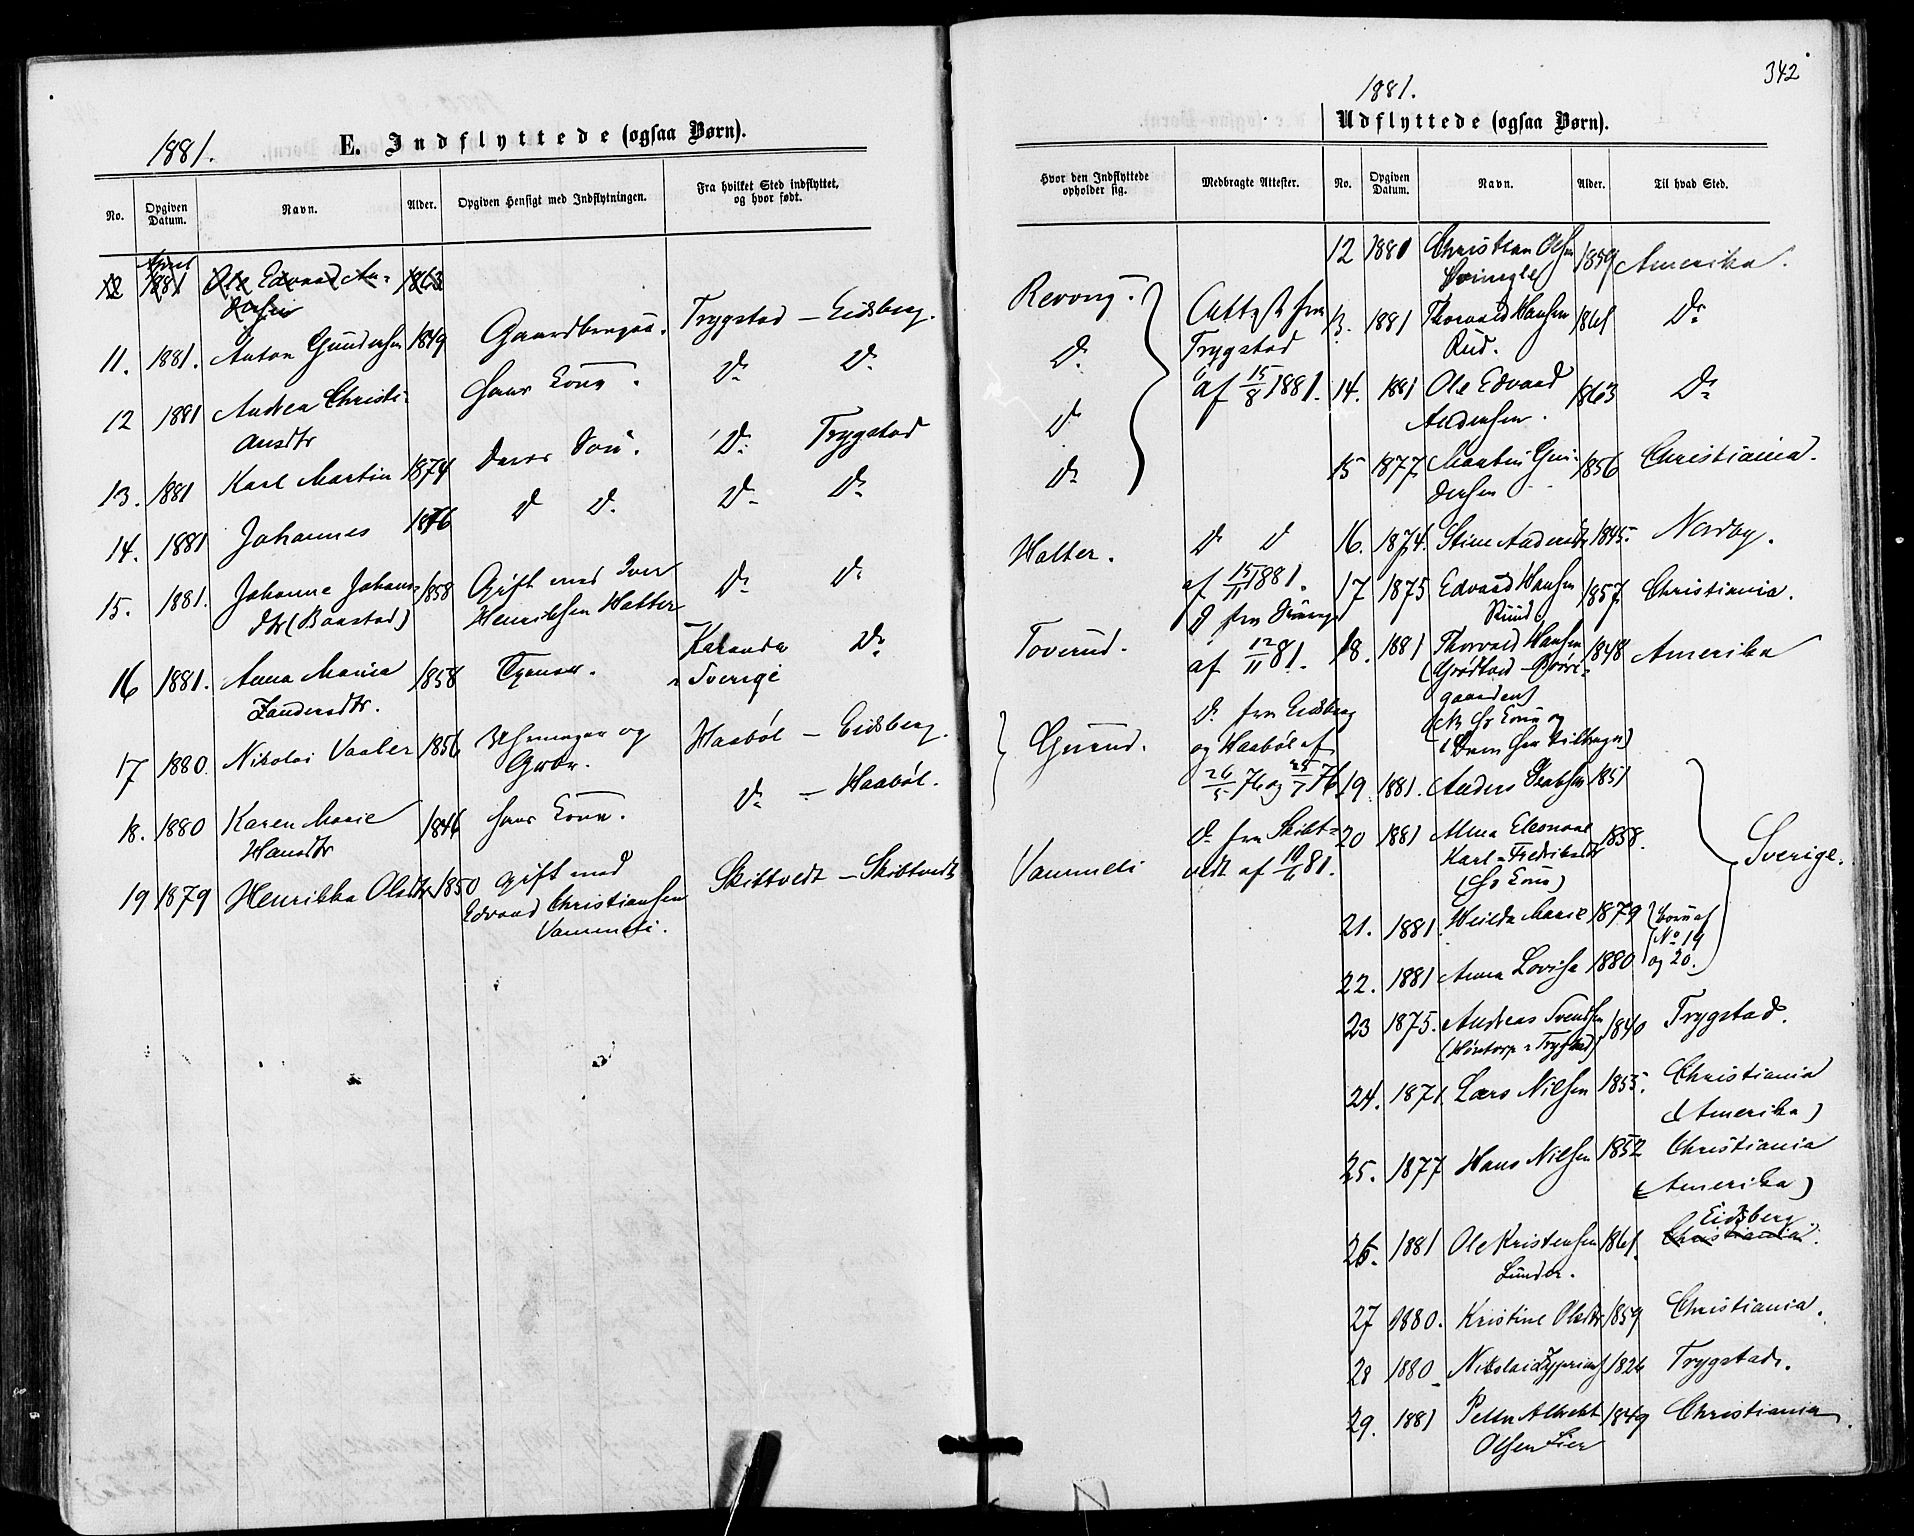 1881.
E. Indflyttede (ogsaa Børn).
No.
Opgiven Datum.
Navn.
Alder.
Opgiven Hensigt med Indflytningen.
Fra hvilket Sted indflyttet, og hvor født.
12 April 1881 Ole Edvard An- 1863
dersen
11. 1881. Anton Gundersen 1849 Gaardbruger. Trygstad – Eidsberg.
12 1881 Andrea Christi- hans Kone. Do Do
ansdtr
13. 1881 Karl Martin 1874 Deres Søn. Do Trygstad
14. 1881 Johannes 1876 Do Do Do Do
15. 1881. Johanne Johans- 1858 Gift med Iver Do Do
dtr (Baastad) Henriksen Halter
16 1881. Anna Maria 1858 Tjener. Do
Sverige
17 1880. Nikolai Vaaler 1856 og Haabøl – Eidsberg.
18. 1880 Karen Marie 1846 hans Kone. Do – Haabøl.
Hansdtr
19 1879 Henrikka Olsdtr 1850 gift med Skibtvedt – Skibtvedt
Edvard Christiansen
Vammeli.
342
1881.
Udflyttede (ogsaa Børn).
Hvor den Indflyttede opholder sig.
Medbragte Attester.
No.
Opgiven Datum.
Navn.
Alder.
Til hvad Sted.
Revoug.
Do
Do
Do
Attest fra
Trygstad
af 15/8 1881.
Halter. Do Do
af 15/11 1881.
Toverud. Do fra
af 12/11 81.
Do fra Eidsberg
Gurud. og Haabøl af
26/5 76 og 25/7 76
Vammeli Do fra Skibt-
vedt af 10/6 81.
12 1881 Christian Olsen 1859 Amerika.
13. 1881 Thorvald Hansen 1861 Do
Rud.
14. 1881 Ole Edvard 1863 Do
Andersen.
15 1877 Martin Gun- 1856 Christiania.
dersen
16. 1874. Stine Andersdtr 1845. Nordby.
17 1875 Edvard Hansen 1857. Christiania.
Ruud
18. 1881 Thorvald Hansen 1848 Amerika
gaarden)
19 1881. Anders 1851
20 1881 Alma Eleonore 1858. Sverige.
Karl-Fredriksdtr
(hs Kone)
21. 1881. Hulda Marie 1879 Børn af
No 19
22. 1881 Anna Lovise 1880 og 20.
23 1875. Andreas Svendsen 1840 Trygstad.
24. 1871. Lars Nilsen 1855. Christiania
(Amerika)
25. 1877 Hans Nilsen 1852 Christiania
(Amerika)
Eidsberg
26. 1881 Ole Kristensen 1861. Christiania.
Lunder.
27 1880. Kristine Olsdtr 1859 Christiania.
28 1880 Nikolai 1826 Trygstad.
29. 1881 Peter Albrekt 1849 Christiania.
Olsen Lier